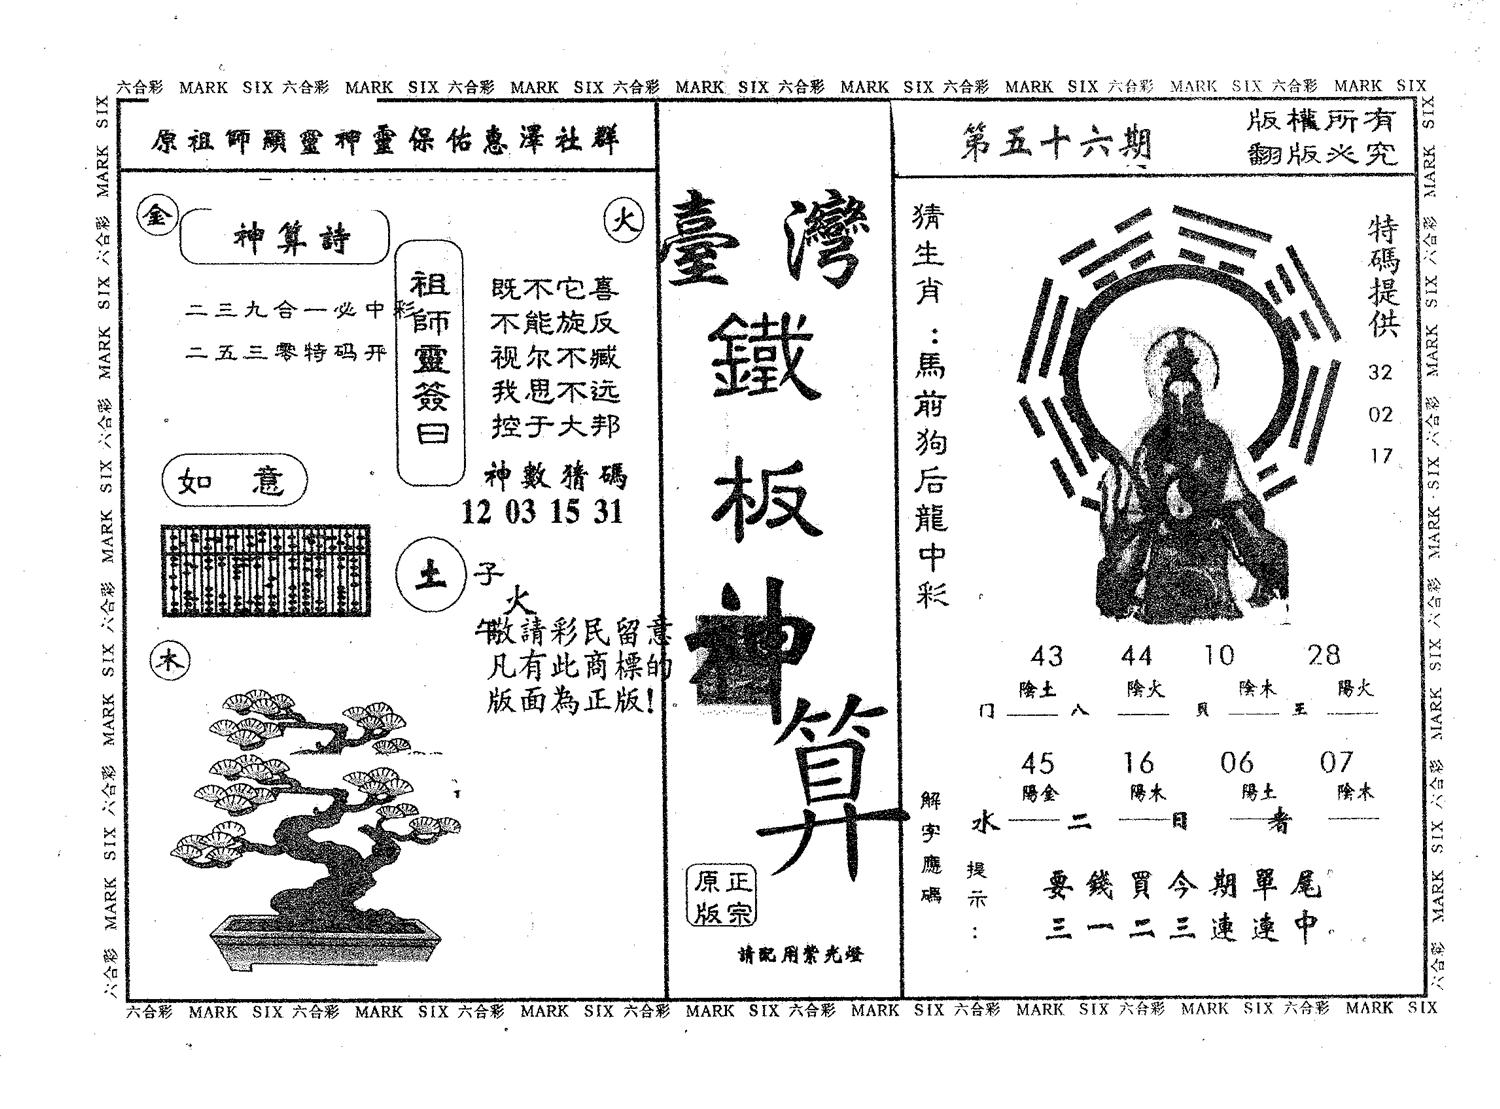 六合彩 MARK SIX 六合彩 MARK SIX 六合彩 MARK SIX 六合彩 MARK SIX 六合彩 MARK SIX 六合彩 MARK SIX 六合彩 MARK SIX 六合彩 MARK SIX
原祖師顯靈神靈保佑惠澤社群
金
火
神算詩
二三九合一必中彩
二五三零特码开
祖師靈簽曰
既不它喜
不能旋反
视尔不臧
我思不远
控于大邦
神數猜碼
12 03 15 31
如意
土
子
火
午
敬請彩民留意
凡有此商標的
版面為正版!
木
臺灣
鐵
板
神
算
正宗
原版
請配用紫光燈
第五十六期
版權所有
翻版必究
猜生肖:馬前狗后龍中彩
特碼提供
32
02
17
43 44 10 28
陰土 陰火 陰木 陽火
门 八 貝 王
45 16 06 07
陽金 陽木 陽土 陰木
水 二 目 者
解字應碼
提示:
要錢買今期單尾
三一二三連連中
六合彩 MARK SIX 六合彩 MARK SIX 六合彩 MARK SIX 六合彩 MARK SIX 六合彩 MARK SIX 六合彩 MARK SIX 六合彩 MARK SIX 六合彩 MARK SIX
六合彩 MARK SIX 六合彩 MARK SIX 六合彩 MARK SIX 六合彩 MARK SIX 六合彩 MARK SIX
六合彩 MARK SIX 六合彩 MARK SIX 六合彩 MARK SIX 六合彩 MARK SIX 六合彩 MARK SIX